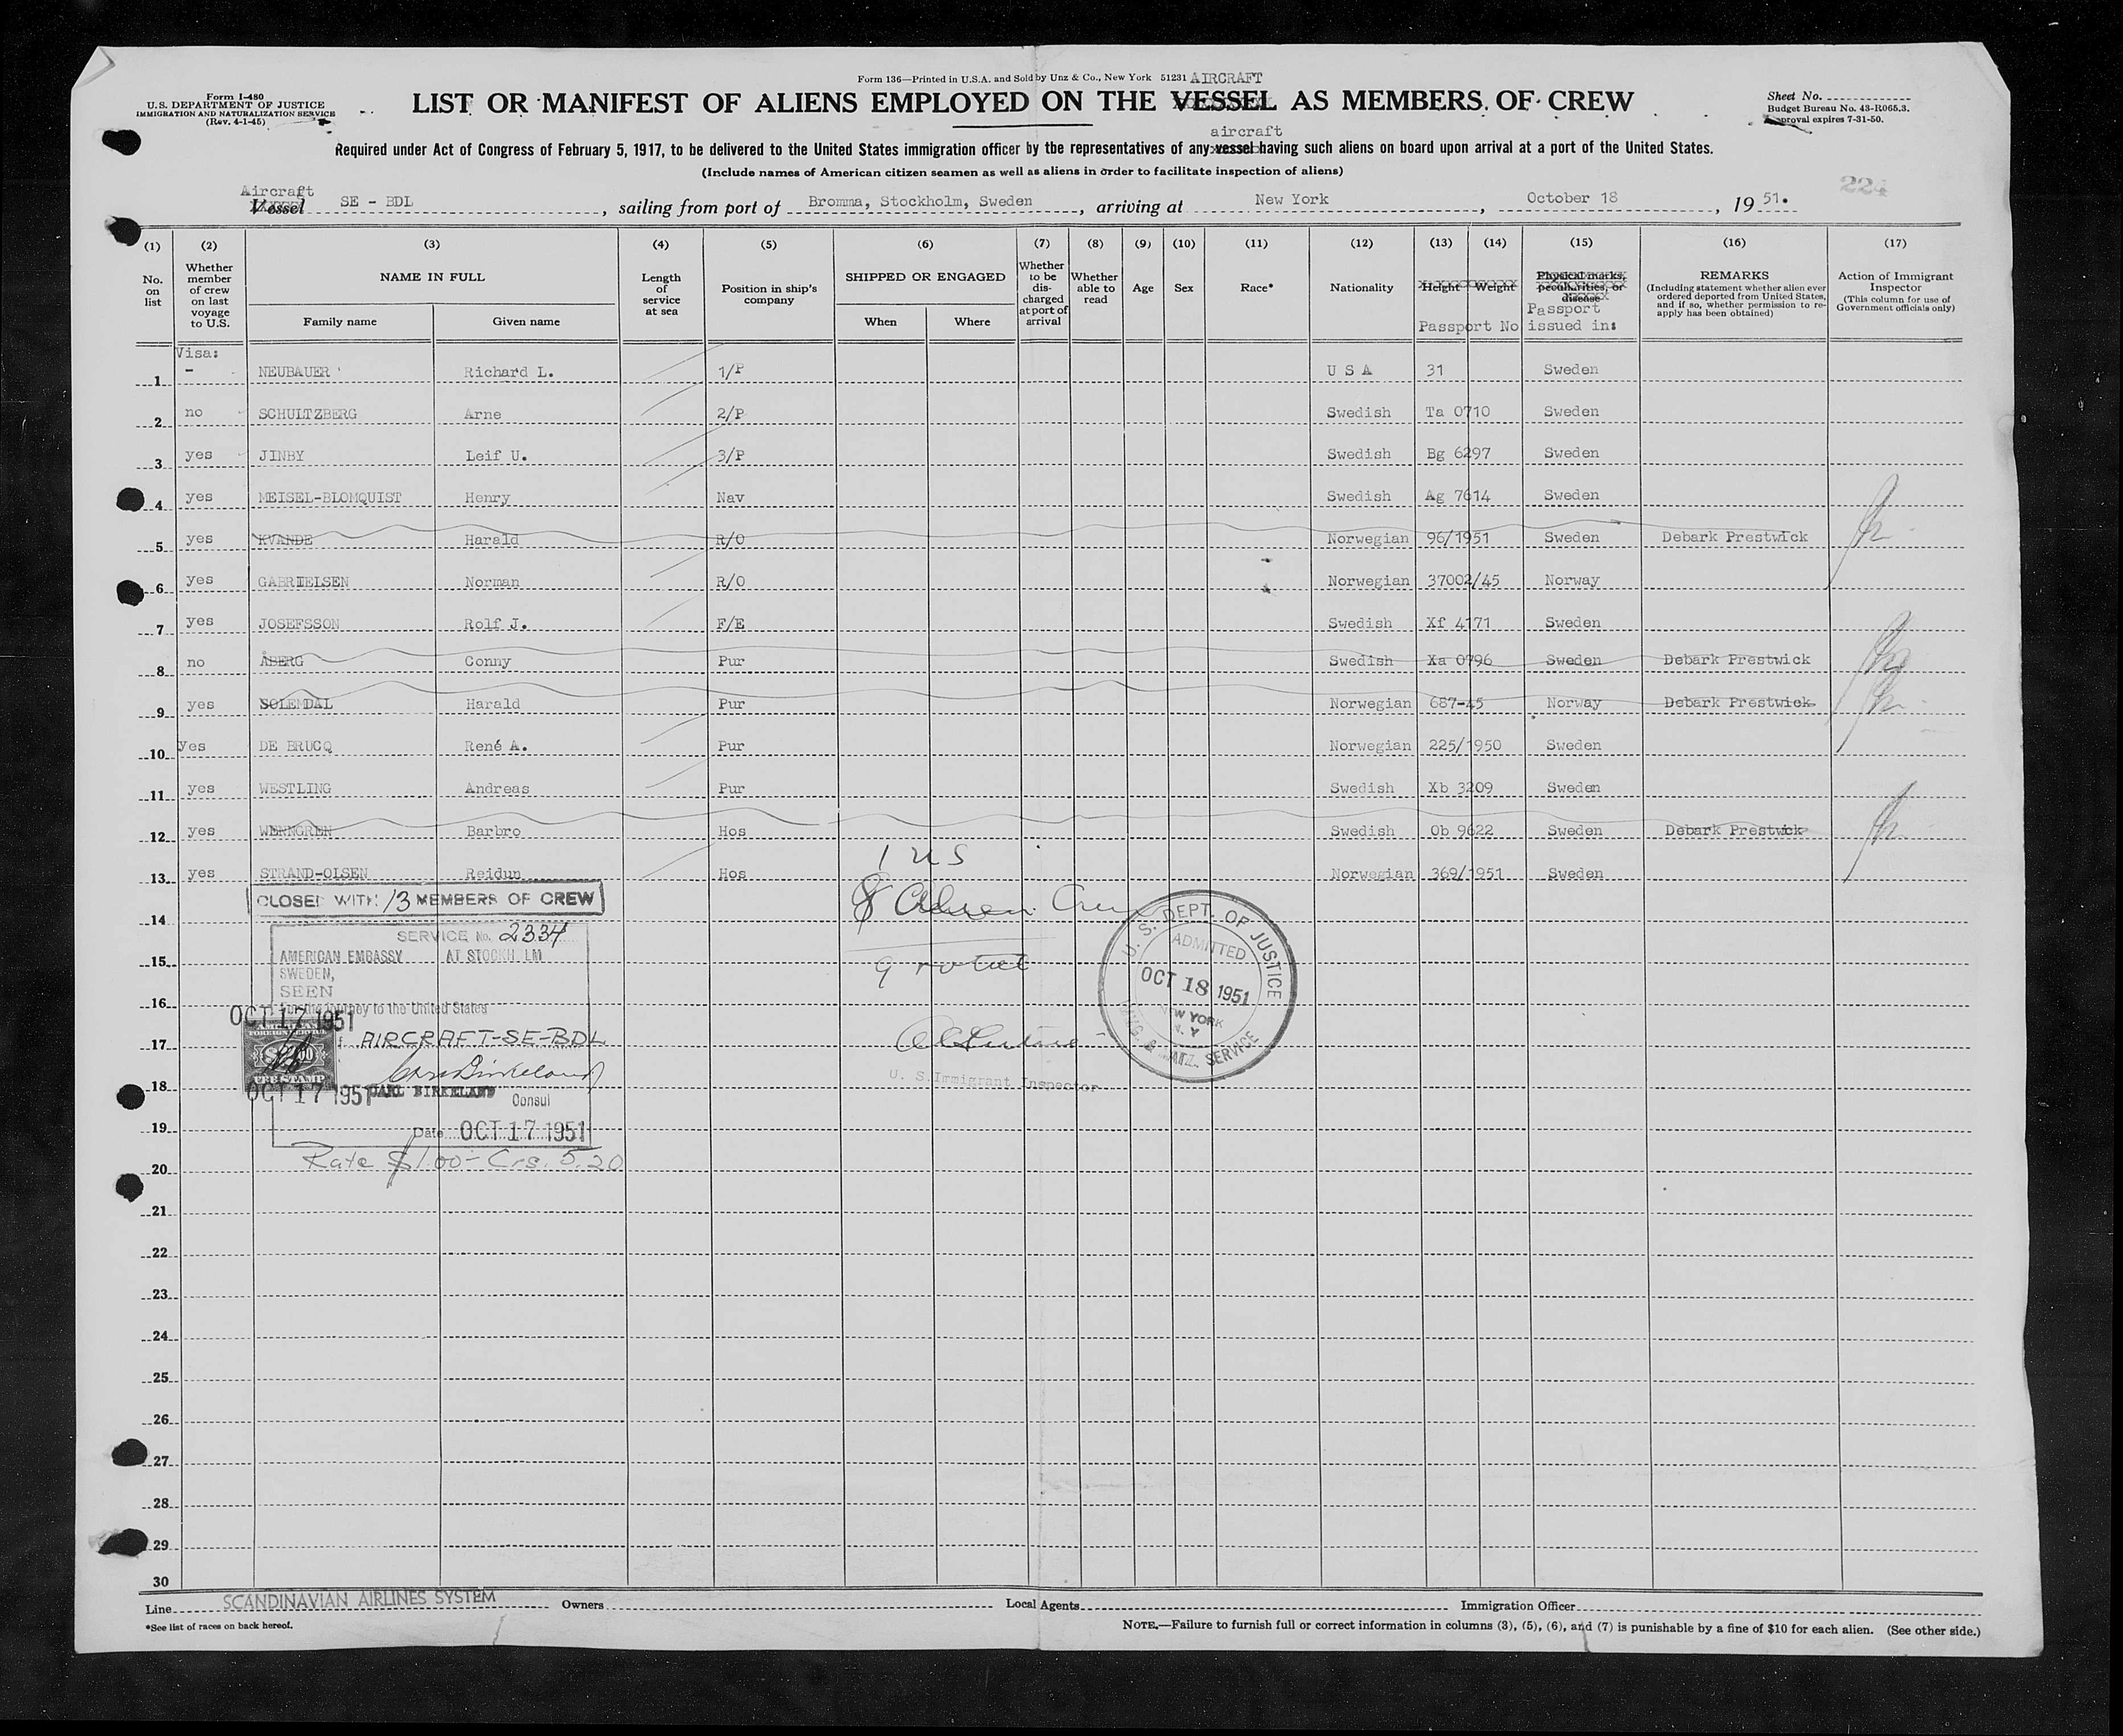 Form 136—Printed in U.S.A. and Sold by Unz & Co., New York 51231 AIRCRAFT
Form I-480
U.S. DEPARTMENT OF JUSTICE
IMMIGRATION AND NATURALIZATION SERVICE
(Rev. 4-1-45)
LIST OR MANIFEST OF ALIENS EMPLOYED ON THE VESSEL AS MEMBERS OF CREW
Sheet No.
Budget Bureau No. 43-R065.3.
Approval expires 7-31-50.
aircraft
Required under Act of Congress of February 5, 1917, to be delivered to the United States immigration officer by the representatives of any vessel having such aliens on board upon arrival at a port of the United States.
(Include names of American citizen seamen as well as aliens in order to facilitate inspection of aliens)
224
Aircraft
Vessel SE - BDL, sailing from port of Bromma, Stockholm, Sweden, arriving at New York, October 18, 19 51.
(1) (2) (3) (4) (5) (6) (7) (8) (9) (10) (11) (12) (13) (14) (15) (16) (17)
No. on list
Whether member of crew on last voyage to U.S.
NAME IN FULL
Family name Given name
Length of service at sea
Position in ship's company
SHIPPED OR ENGAGED
When Where
Whether to be discharged at port of arrival
Whether able to read
Age
Sex
Race*
Nationality
Height Weight
Passport No
Physical marks, peculiarities, or disease
Passport issued in:
REMARKS
(Including statement whether alien ever ordered deported from United States, and if so, whether permission to reapply has been obtained)
Action of Immigrant Inspector
(This column for use of Government officials only)
Visa:
1 - NEUBAUER Richard L. 1/P U S A 31 Sweden
2 no SCHULTZBERG Arne 2/P Swedish Ta 0710 Sweden
3 yes JINBY Leif U. 3/P Swedish Bg 6297 Sweden
4 yes MEISEL-BLOMQUIST Henry Nav Swedish Ag 7614 Sweden
5 yes KVANDE Harald R/O Norwegian 96/1951 Sweden Debark Prestwick
6 yes GABRIELSEN Norman R/O Norwegian 37002/45 Norway
7 yes JOSEFSSON Rolf J. F/E Swedish Xf 4171 Sweden
8 no ÅBERG Conny Pur Swedish Xa 0796 Sweden Debark Prestwick
9 yes SOLEMDAL Harald Pur Norwegian 687-45 Norway Debark Prestwick
10 Yes DE BRUCQ René A. Pur Norwegian 225/1950 Sweden
11 yes WESTLING Andreas Pur Swedish Xb 3209 Sweden
12 yes WENNGREN Barbro Hos Swedish Ob 9622 Sweden Debark Prestwick
13 yes STRAND-OLSEN Reidun Hos Norwegian 369/1951 Sweden
1 US
8 Alien Crew
9 total
CLOSED WITH 13 MEMBERS OF CREW
14
SERVICE No. 2334
AMERICAN EMBASSY AT STOCKHOLM
15
SWEDEN,
SEEN
16
For the journey to the United States
OCT 17 1951
17
AIRCRAFT-SE-BDL
FEE STAMP
18
OCT 17 1951
CARL BIRKELAND
Consul
19
Date OCT 17 1951
20
Rate $1.00 - Crs. 5.20
U. S. DEPT. OF JUSTICE
ADMITTED
OCT 18 1951
NEW YORK
N. Y
IMM. & NATZ. SERVICE
U. S. Immigrant Inspector
21
22
23
24
25
26
27
28
29
30
Line SCANDINAVIAN AIRLINES SYSTEM Owners Local Agents Immigration Officer
*See list of races on back hereof.
NOTE.—Failure to furnish full or correct information in columns (3), (5), (6), and (7) is punishable by a fine of $10 for each alien. (See other side.)